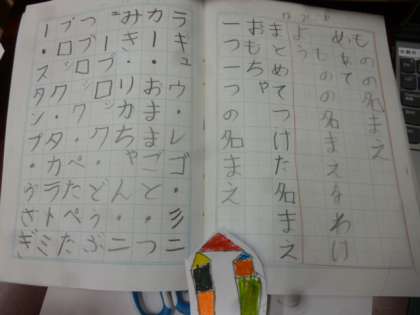 ものの名まえ
めあて
ものの名まえをわけ
よう
まとめてつけた名まえ
おもちゃ
一つ一つの名まえ
ラキュウ・レゴ・ミニ
カー・おままごと・つ
みき・リカちゃん・ニ
ューブロック・どうぶ
つブロック・ぺたぺた
ブロック・タカラトミ
ー・スタンプ・うさぎ